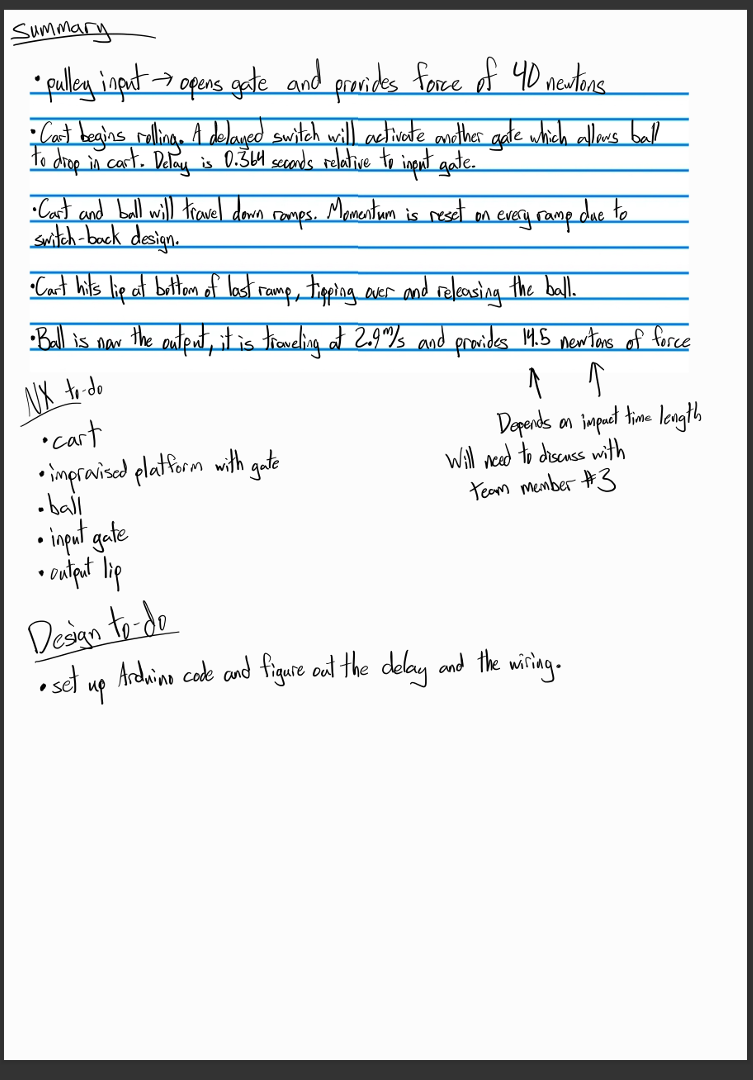 Summary
• pulley input → opens gate and provides force of 40 newtons
• Cart begins rolling. A delayed switch will activate another gate which allows ball
to drop in cart. Delay is 0.364 seconds relative to input gate.
• Cart and ball will travel down ramps. Momentum is reset on every ramp due to
switch-back design.
• Cart hits lip at bottom of last ramp, tipping over and releasing the ball.
• Ball is now the output, it is traveling at 2.9 m/s and provides 14.5 newtons of force
↑ ↑
Depends on impact time length
Will need to discuss with
team member #3
NX to-do
• cart
• improvised platform with gate
• ball
• input gate
• output lip
Design to-do
• set up Arduino code and figure out the delay and the wiring.